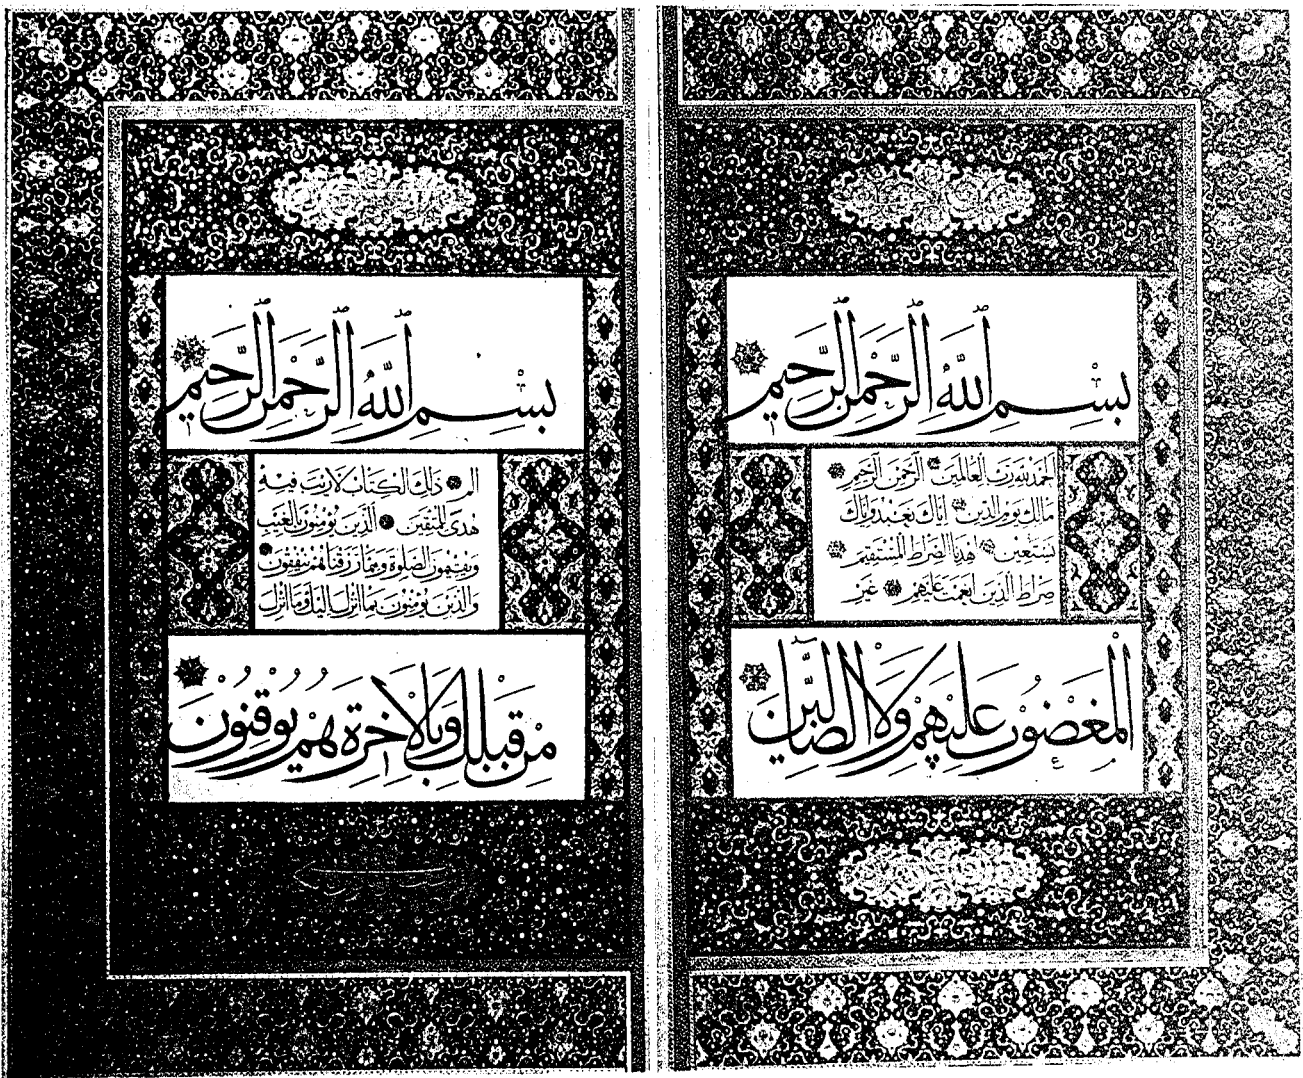 بسم الله الرحمن الرحيم
الحمد لله رب العالمين الرحمن الرحيم
مالك يوم الدين اياك نعبد واياك
نستعين اهدنا الصراط المستقيم
صراط الذين انعمت عليهم غير
المغضوب عليهم ولا الضالين
بسم الله الرحمن الرحيم
الم ذلك الكتاب لا ريب فيه
هدى للمتقين الذين يؤمنون بالغيب
ويقيمون الصلوة ومما رزقناهم ينفقون
والذين يؤمنون بما انزل اليك وما انزل
من قبلك وبالاخرة هم يوقنون